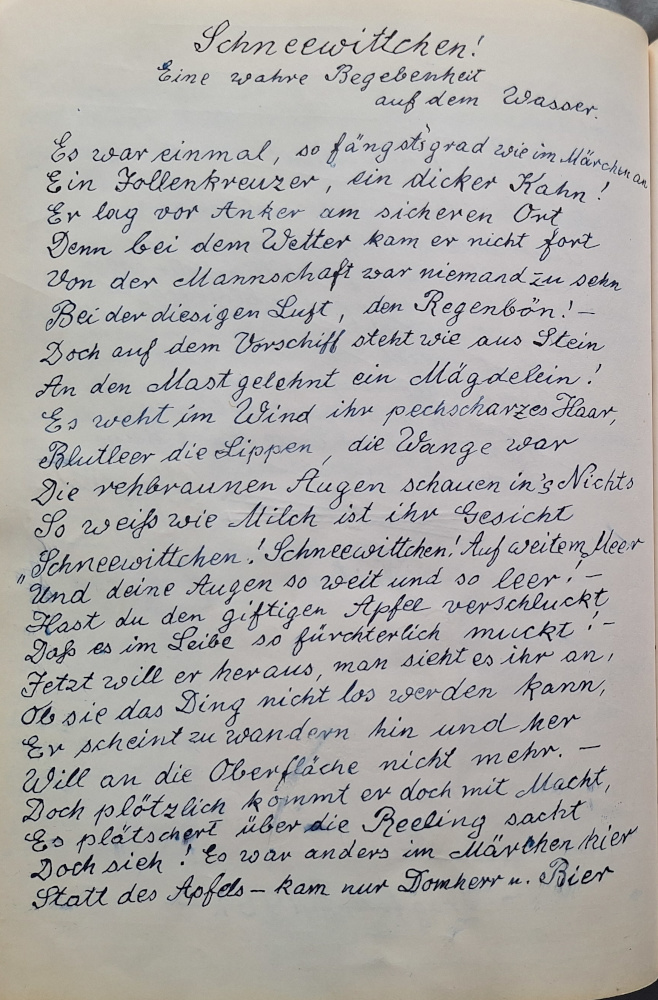 Schneewittchen!
Eine wahre Begebenheit
auf dem Wasser.
Es war einmal, so fängt's grad wie im Märchen an
Ein Jollenkreuzer, ein dicker Kahn!
Er lag vor Anker am sicheren Ort
Denn bei dem Wetter kam er nicht fort
Von der Mannschaft war niemand zu sehn
Bei der diesigen Luft, den Regenbön! –
Doch auf dem Vorschiff steht wie aus Stein
An den Mast gelehnt ein Mägdelein!
Es weht im Wind ihr pechscharzes Haar,
Blutleer die Lippen, die Wange war
Die rehbraunen Augen schauen in's Nichts
So weiß wie Milch ist ihr Gesicht
"Schneewittchen! Schneewittchen! Auf weitem Meer
Und deine Augen so weit und so leer! –
Hast du den giftigen Apfel verschluckt
Daß es im Leibe so fürchterlich muckt! –
Jetzt will er heraus, man sieht es ihr an,
Ob sie das Ding nicht los werden kann,
Er scheint zu wandern hin und her
Will an die Oberfläche nicht mehr. –
Doch plötzlich kommt er doch mit Macht,
Es plätschert über die Reeling sacht
Doch sieh! Es war anders im Märchen hier
Statt des Apfels – kam nur Domherr u. Bier